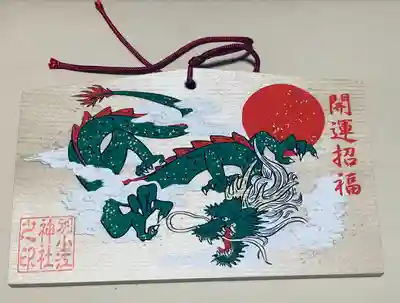 開運招福
別小江
神社
之印